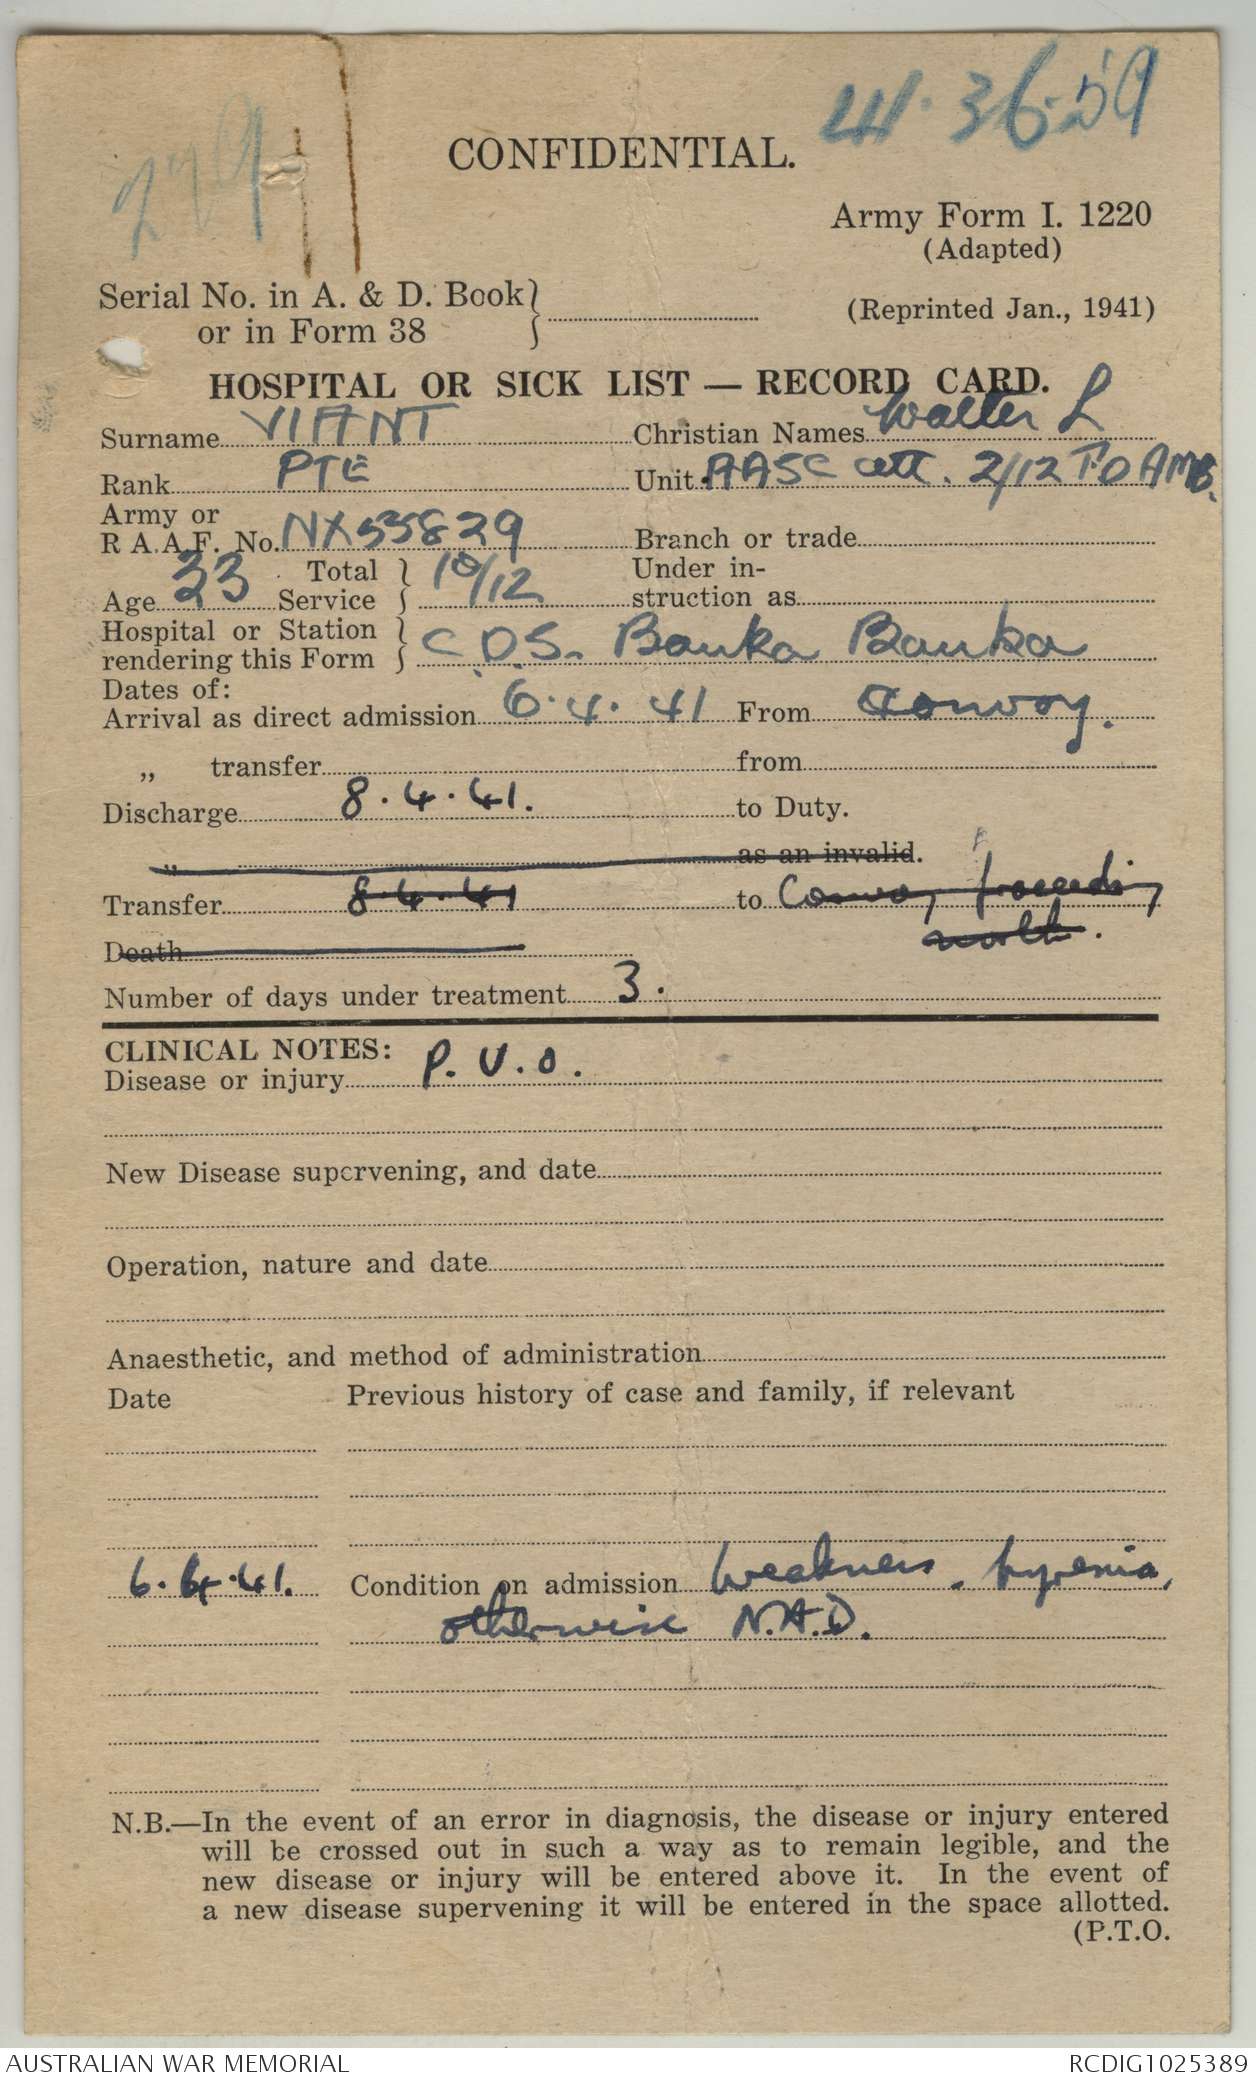 279
441.36.59
CONFIDENTIAL.
Army Form I. 1220
(Adapted)
Serial No. in A. & D. Book
or in Form 38
(Reprinted Jan., 1941)
HOSPITAL OR SICK LIST — RECORD CARD.
Surname VIANT Christian Names Walter L
Rank PTE Unit AASC att. 2/12 FD AMB.
Army or
R A.A.F. No. NX53829 Branch or trade
Age 33 Total Service 10/12 Under in-
struction as
Hospital or Station
rendering this Form C.D.S. Banka Banka
Dates of:
Arrival as direct admission 6.4.41 From Convoy.
„ transfer from
Discharge 8.4.41. to Duty.
„ as an invalid.
Transfer 8.4.41 to Convoy proceeding
north.
Death
Number of days under treatment 3.
CLINICAL NOTES:
Disease or injury P.U.O.
New Disease supervening, and date
Operation, nature and date
Anaesthetic, and method of administration
Date Previous history of case and family, if relevant
6.4.41. Condition on admission Weakness. pyrexia,
otherwise N.A.D.
N.B.—In the event of an error in diagnosis, the disease or injury entered
will be crossed out in such a way as to remain legible, and the
new disease or injury will be entered above it. In the event of
a new disease supervening it will be entered in the space allotted.
(P.T.O.
AUSTRALIAN WAR MEMORIAL RCDIG1025389